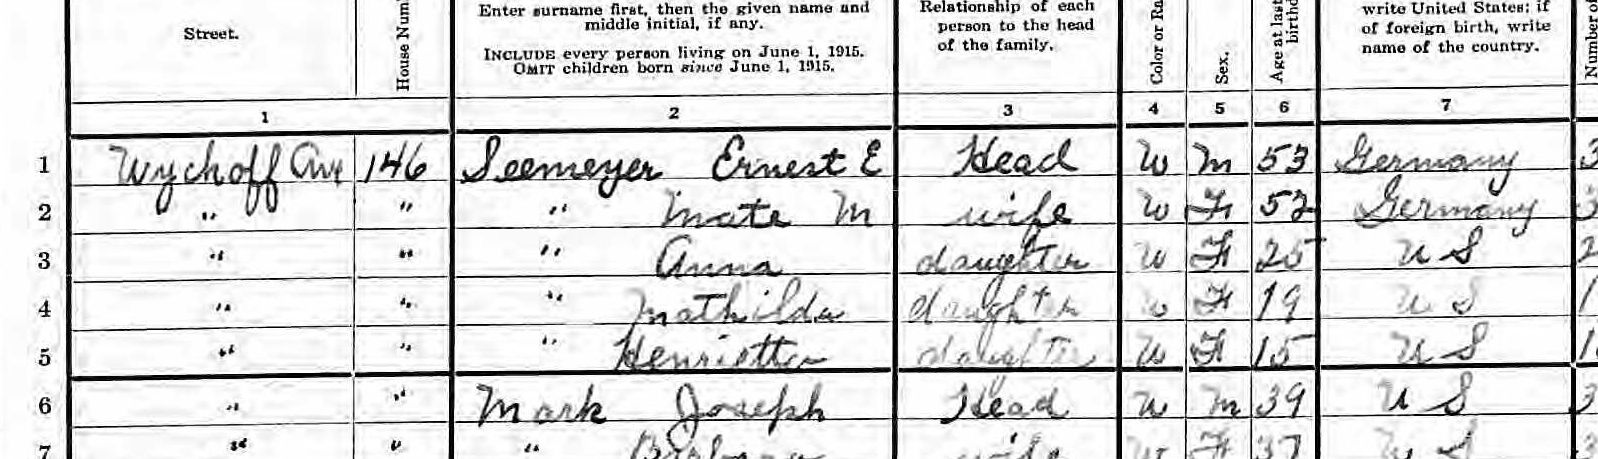 Street.
House Num
Enter surname first, then the given name and
middle initial, if any.
INCLUDE every person living on June 1, 1915.
OMIT children born since June 1, 1915.
Relationship of each
person to the head
of the family.
Color or Ra
Sex.
Age at last
birthd
write United States; if
of foreign birth, write
name of the country.
Number of
1 2 3 4 5 6 7
1 Wyckoff Ave 146 Seemeyer Ernest E Head W M 53 Germany 3
2 " " " Mate M wife W F 52 Germany 3
3 " " " Anna daughter W F 25 U S 2
4 " " " Mathilda daughter W F 19 U S 1
5 " " " Henrietta daughter W F 15 U S 1
6 " " Mark Joseph Head W M 39 U S 3
7 " " " Barbara wife W F 37 U S 3